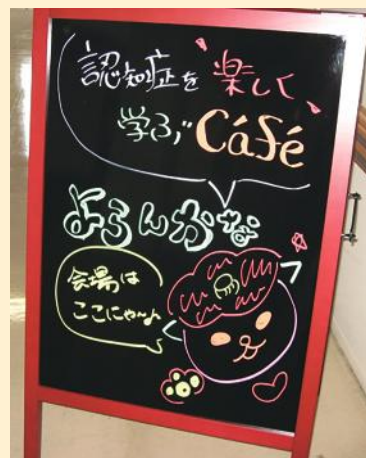 認知症を楽しく
学ぶCafé
よろんかな
会場は
ここにゃんよ